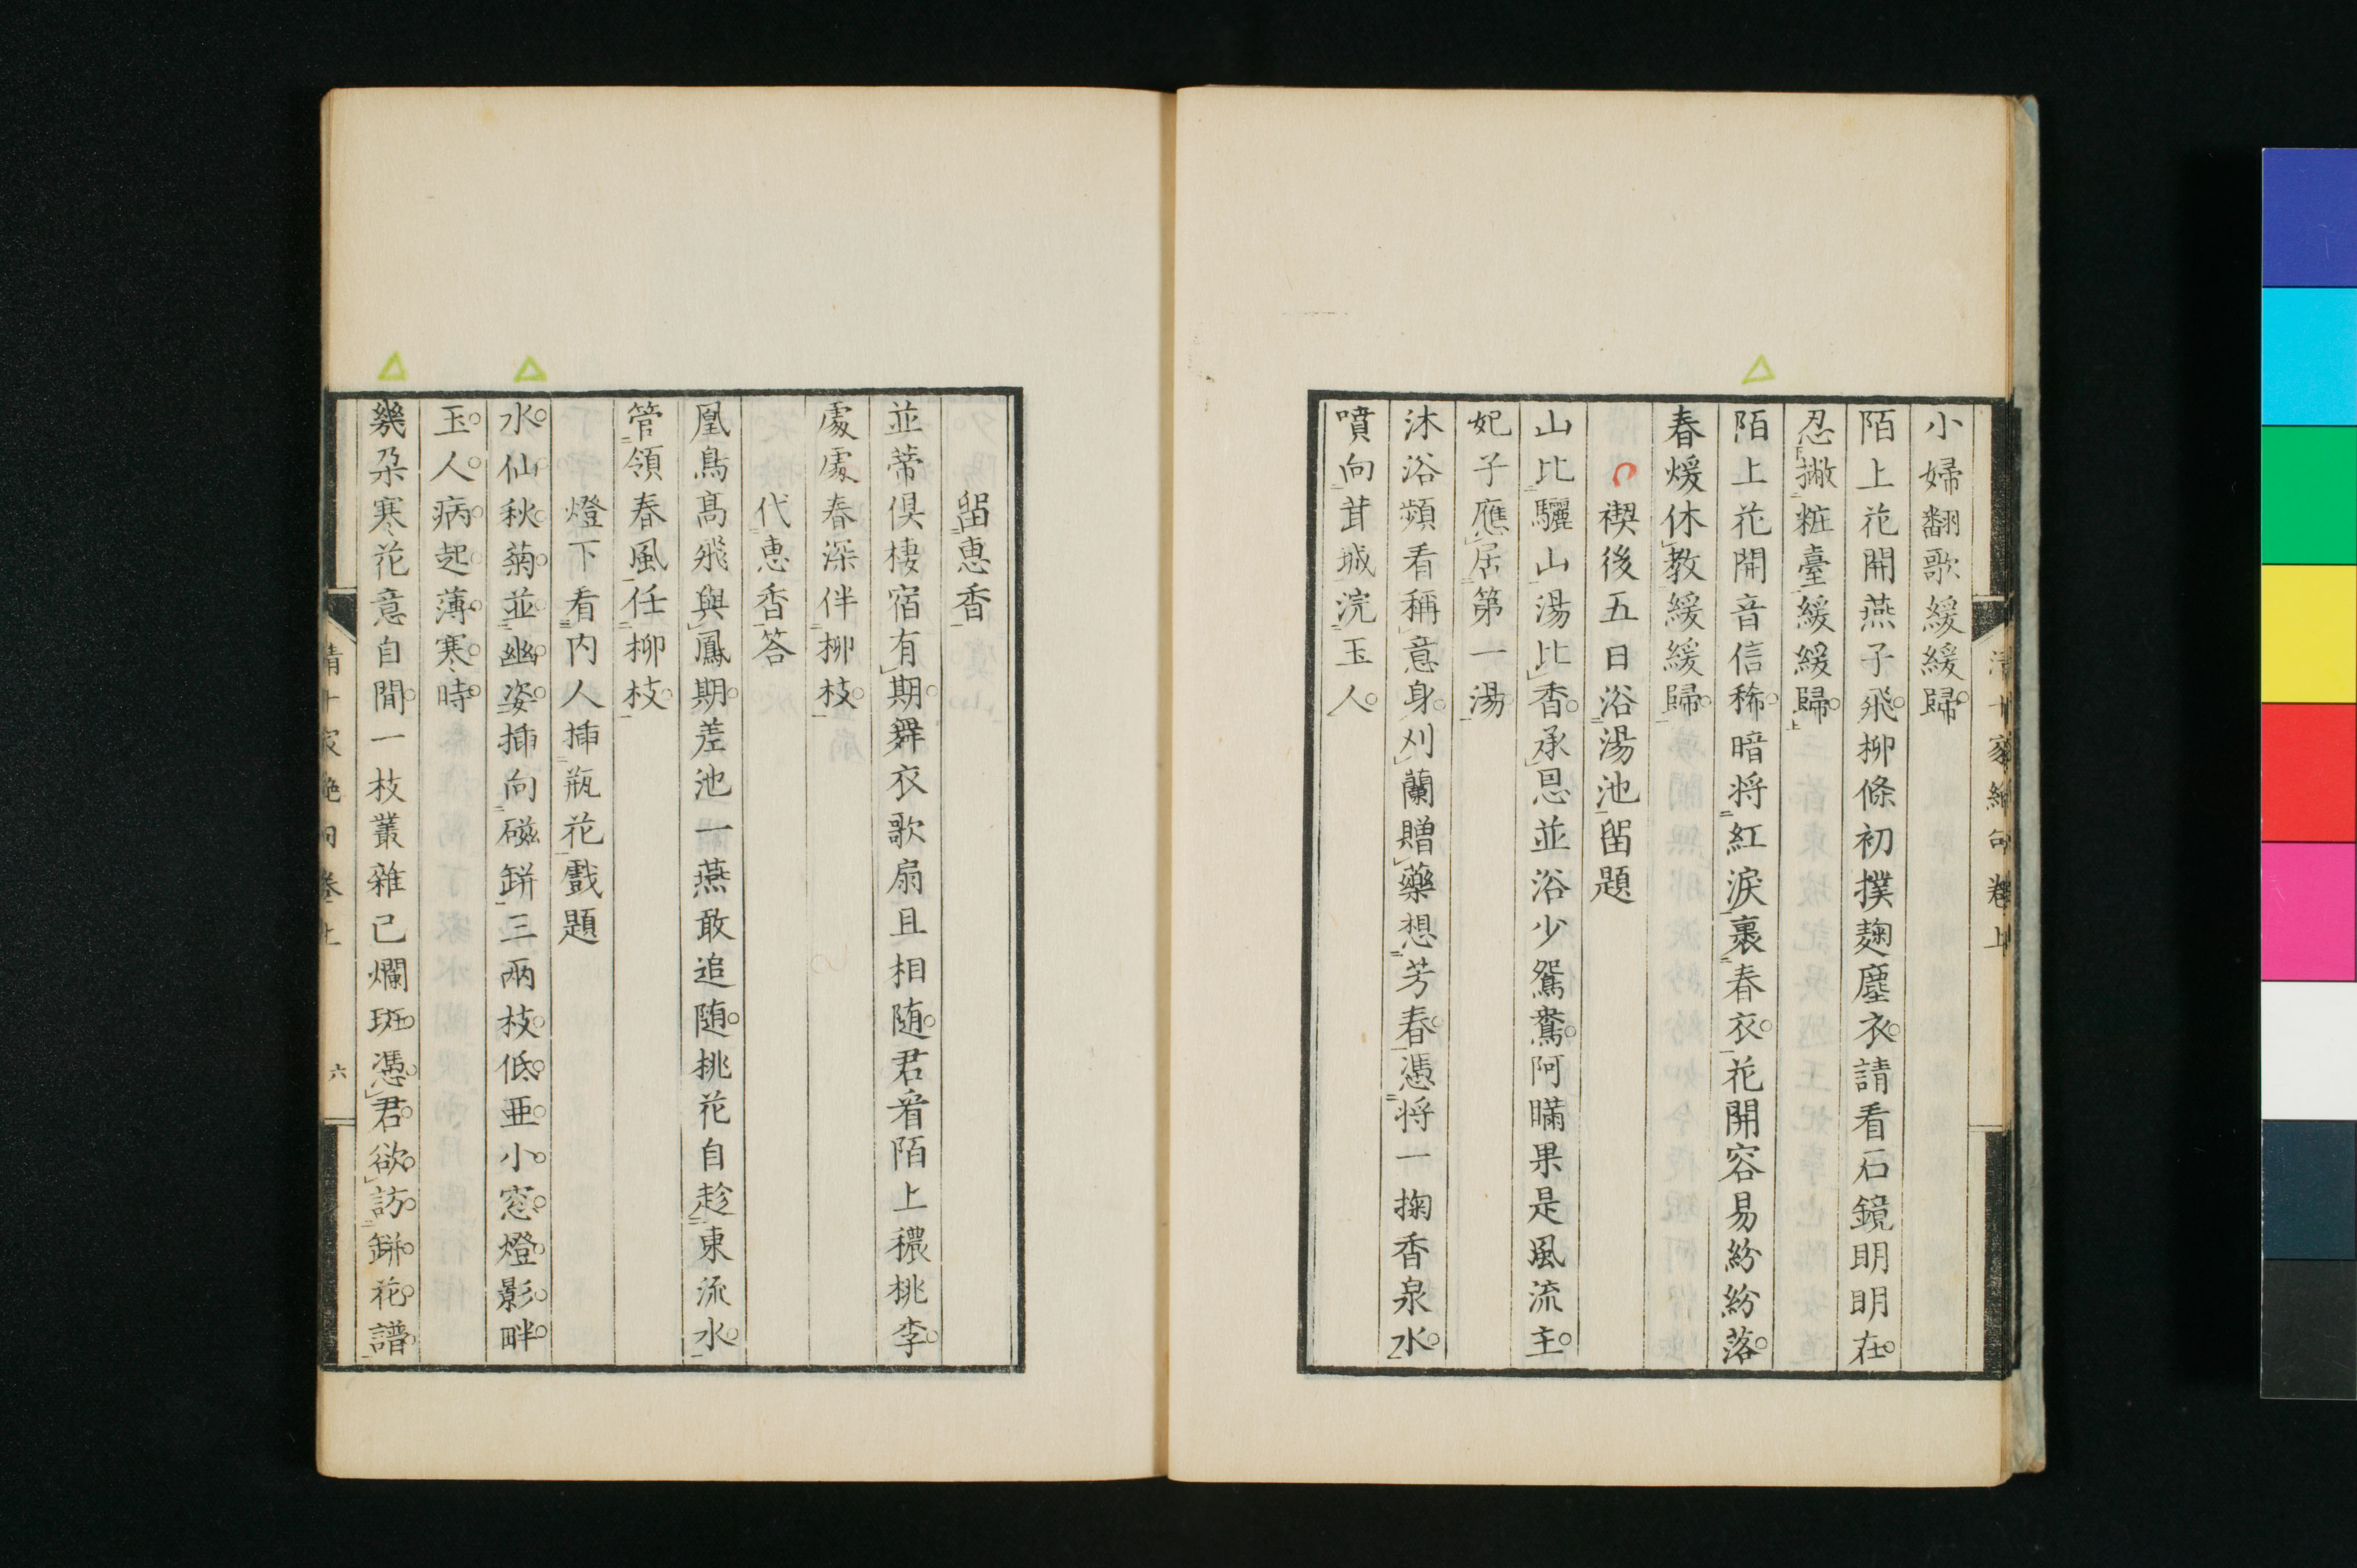 小婦翻歌緩緩歸
陌上花開燕子飛柳條初撲麹塵衣請看石鏡明明在
忍撇粧臺緩緩歸
陌上花開音信稀暗将紅淚裹春衣花開容易紛紛落
春煖休教緩緩歸
禊後五日浴湯池留題
山比驪山湯比香承恩並浴少鴛鴦阿瞞果是風流主
妃子應居第一湯
沐浴頻看稱意身刈蘭贈藥想芳春憑将一掬香泉水
噴向茸城浣玉人
清十家絶句卷上
留惠香
並蒂俱棲宿有期舞衣歌扇且相随君看陌上穠桃李
處處春深伴柳枝
代惠香答
凰鳥高飛與鳳期差池一燕敢追随桃花自趁東流水
管領春風任柳枝
燈下看内人插瓶花戲題
水仙秋菊並幽姿插向磁缾三兩枝低亜小窓燈影畔
玉人病起薄寒時
幾朶寒花意自間一枝叢雜已爛斑憑君欲訪缾花譜
清十家絶句卷上 六